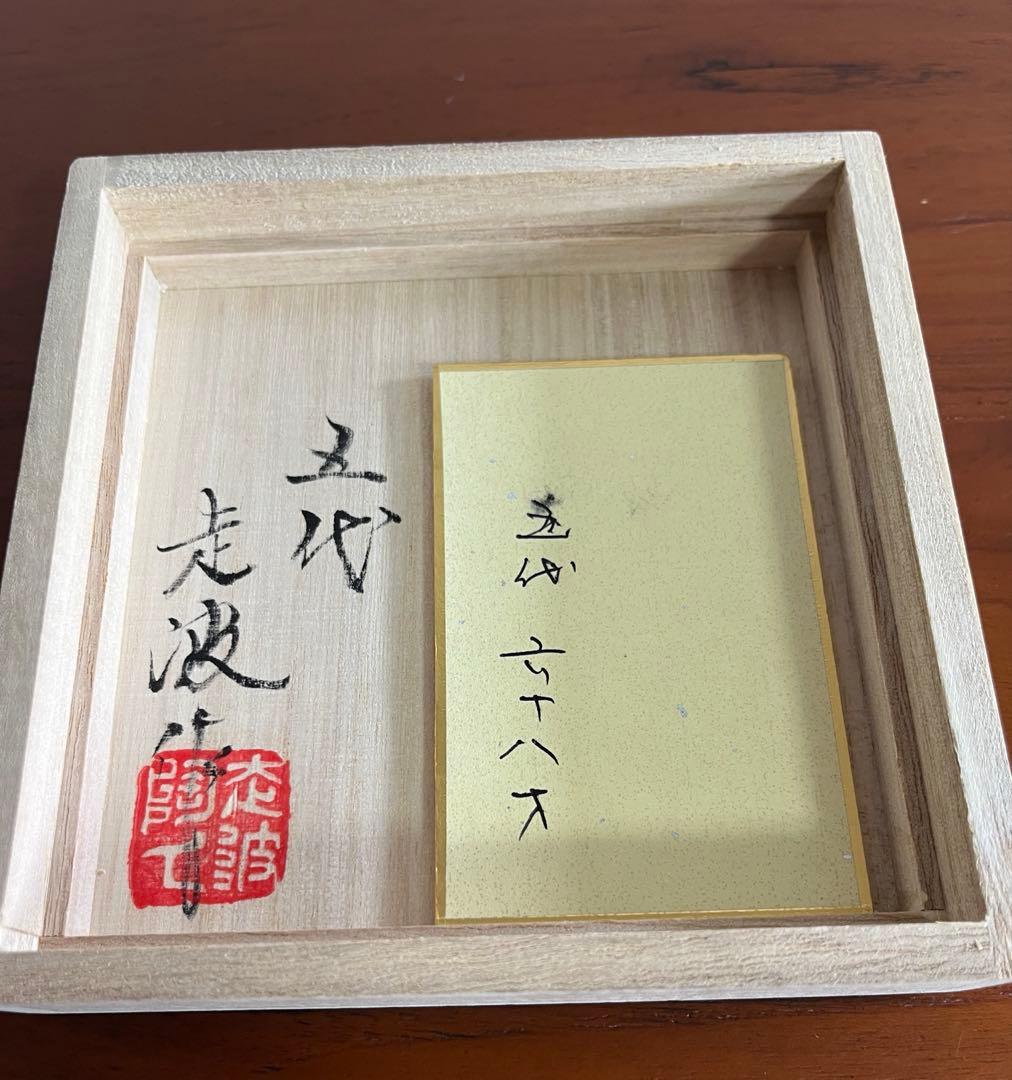 五代 六十八才
五代
走波作
走波
陶工